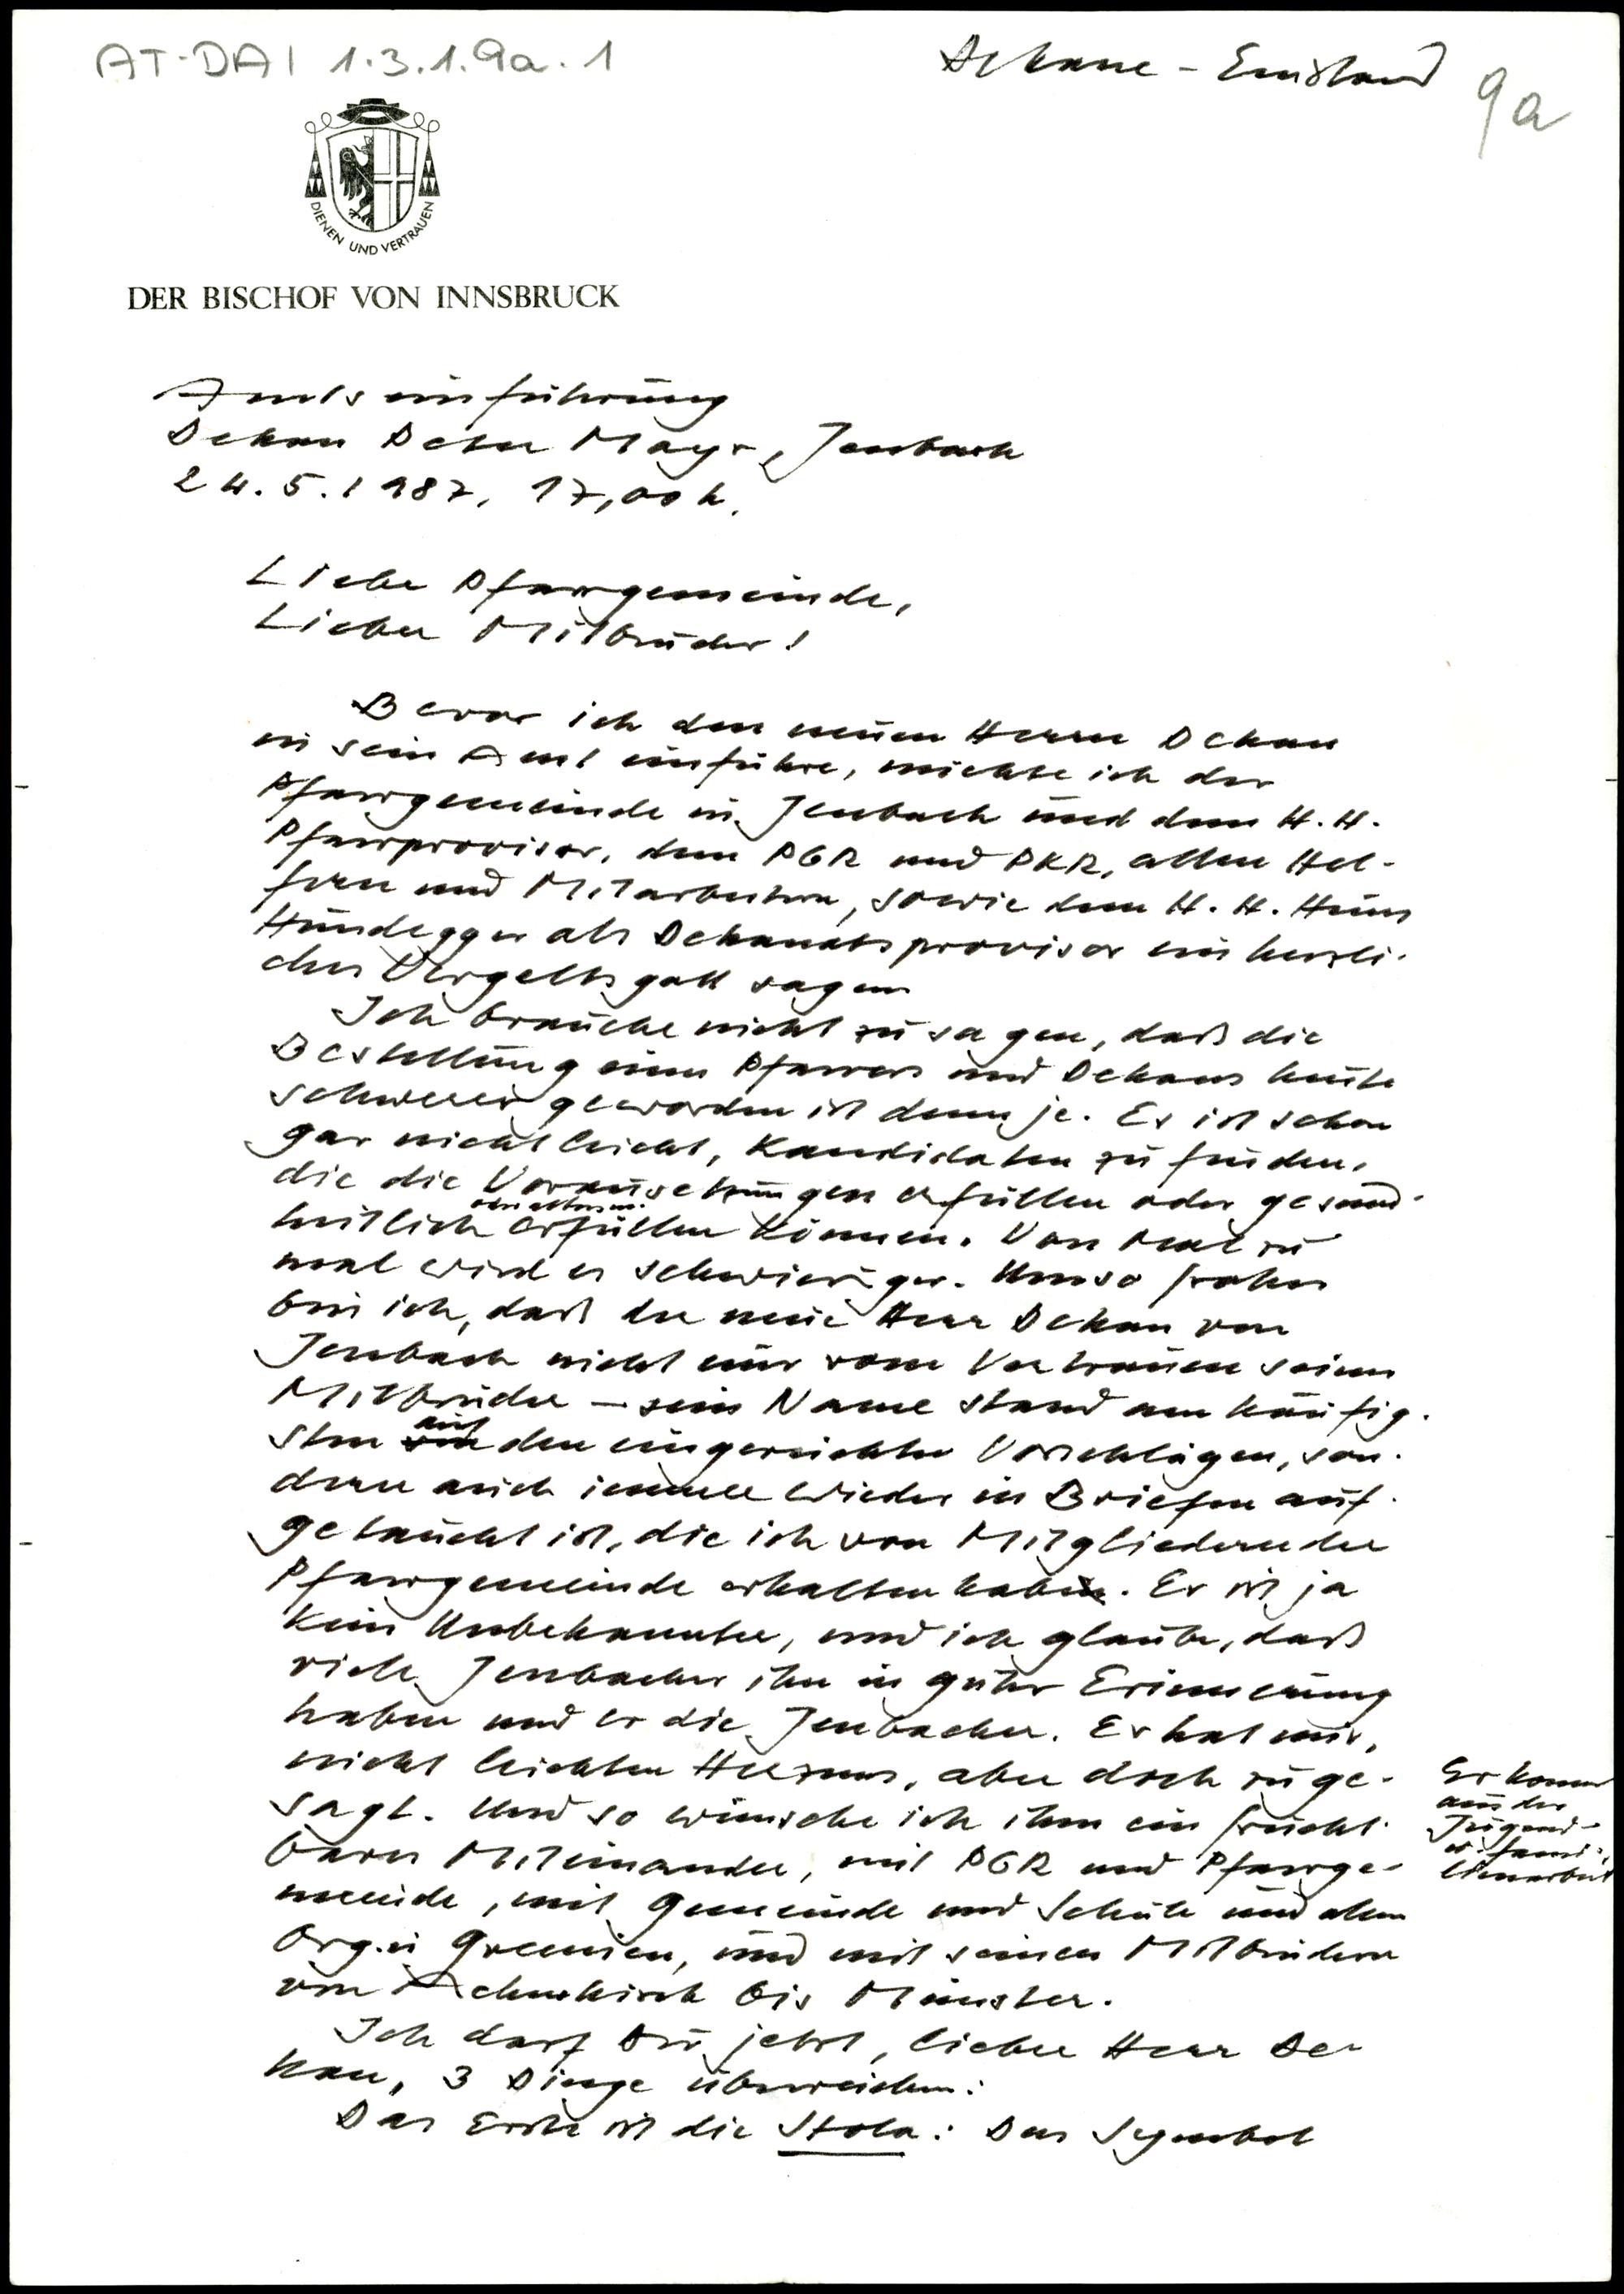 AT-DAI 1.3.1.9a.1
Dekane - Einstand
9a
DIENEN UND VERTRAUEN
DER BISCHOF VON INNSBRUCK
Amtseinführung
Dekan Peter Mayr, Jenbach
24.5.1987, 17,00 h.
Liebe Pfarrgemeinde,
Lieber Mitbruder!
Bevor ich den neuen Herrn Dekan
in sein Amt einführe, möchte ich der
Pfarrgemeinde in Jenbach und dem H.H.
Pfarrprovisor, dem PGR und PKR, allen Hel-
fern und Mitarbeitern, sowie dem H.H. Hans
Hundegger als Dekanatsprovisor ein herzli-
ches Vergeltsgott sagen
Ich brauche nicht zu sagen, daß die
Bestellung eines Pfarrers und Dekans heute
schwerer geworden ist denn je. Es ist schon
gar nicht leicht, Kandidaten zu finden,
die die Voraussetzungen erfüllen oder gesund-
heitlich erfüllen können. Von Mal zu
mal wird es schwieriger. Umso froher
bin ich, daß der neue Herr Dekan von
Jenbach nicht nur vom Vertrauen seiner
Mitbrüder – sein Name stand am häufig-
sten auf den eingereichten Vorschlägen, son-
dern auch immer wieder in Briefen auf-
getaucht ist, die ich von Mitgliedern der
Pfarrgemeinde erhalten habe. Er ist ja
kein Unbekannter, und ich glaube, daß
viele Jenbacher ihn in guter Erinnerung
haben und er die Jenbacher. Er hat mir,
nicht leichten Herzens, aber doch zuge-
sagt. Und so wünsche ich ihm ein frucht-
bares Miteinander, mit PGR und Pfarrge-
meinde, mit Gemeinde und Schule und allen
Org. Gremien, und mit seinen Mitbrüdern
von Achenkirch bis Münster.
Er kommt
aus der
Jugend-
u. Fami-
lienarbeit
Ich darf Dir jetzt, lieber Herr De-
kan, 3 Dinge überreichen:
Das Erste ist die Stola: Das Symbol